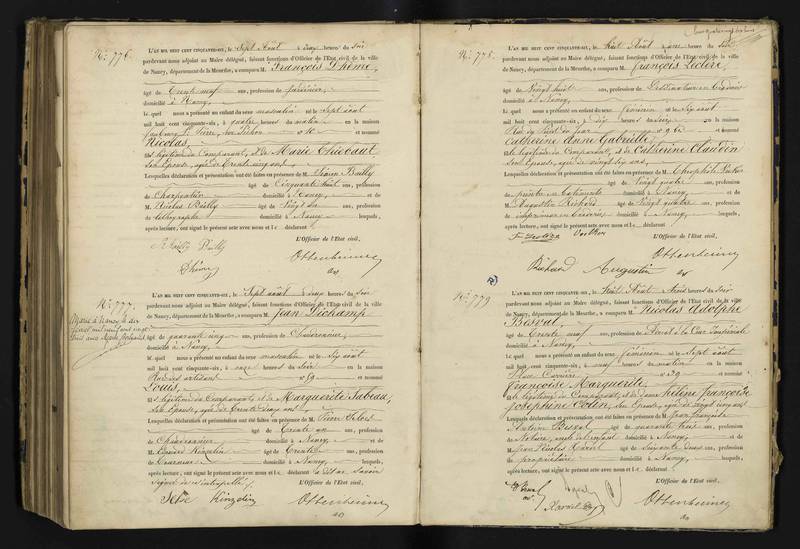 N.° 776.
L'AN MIL HUIT CENT CINQUANTE-SIX, le Sept Août à deux heures du Soir
pardevant nous adjoint au Maire délégué, faisant fonctions d'Officier de l'Etat civil de la ville
de Nancy, département de la Meurthe, a comparu M. François Dhême,
âgé de Trente neuf ans, profession de
domicilié à Nancy,
L quel nous a présenté un enfant du sexe masculin né le Sept août
mil huit cent cinquante-six, à quatre heures du matin en la maison
faubourg St. Pierre, et nommé
Nicolas,
fils légitime du Comparant, et de Marie Thiébaut
Son Epouse, âgée de Trente cinq ans
Lesquelles déclaration et présentation ont été faites en présence de M. Simon Bailly
âgé de Cinquante huit ans, profession
de Charpentier domicilié à Nancy et de
M. Nicolas Bailly âgé de Vingt six ans, profession
de lithographe domicilié à Nancy lesquels,
après lecture, ont signé le présent acte avec nous et l e déclarant
L'Officier de l'Etat civil,
Bailly Ottenheimer
Dhême
N.° 777.
L'AN MIL HUIT CENT CINQUANTE-SIX, le Sept août à deux heures du Soir
pardevant nous adjoint au Maire délégué, faisant fonctions d'Officier de l'Etat civil de la ville
de Nancy, département de la Meurthe, a comparu M. Jean Dechamp
âgé de quarante cinq ans, profession de Chaudronnier,
domicilié à Nancy,
L quel nous a présenté un enfant du sexe masculin né le Six août
mil huit cent cinquante-six, à onze heures du Soir en la maison
n° 89 et nommé
Louis,
fils légitime du Comparant, et de Marguerite Sableau,
Son Epouse, âgée de Trente deux ans
Lesquelles déclaration et présentation ont été faites en présence de M. Pierre
âgé de Trente un ans, profession
de Chaudronnier domicilié à Nancy et de
M. Edouard Kinzelin âgé de Trente ans, profession
de Tourneur domicilié à Nancy, lesquels,
après lecture, ont signé le présent acte avec nous et l e déclarant a dit ne savoir
signer de ce interpellé.
L'Officier de l'Etat civil,
Kinzelin Ottenheimer
N.° 778.
L'AN MIL HUIT CENT CINQUANTE-SIX, le huit Août à heures du Soir
pardevant nous adjoint au Maire délégué, faisant fonctions d'Officier de l'Etat civil de la ville
de Nancy, département de la Meurthe, a comparu M. François Leclerc,
âgé de Vingt huit ans, profession de Dessinateur en broderie
domicilié à Nancy,
L quel nous a présenté un enfant du sexe féminin né le Six août
mil huit cent cinquante-six, à dix heures du Soir en la maison
et nommé
Catherine Anne Gabrielle
elle légitime du Comparant, et de Catherine Claudon
Son Epouse, âgée de vingt six ans,
Lesquelles déclaration et présentation ont été faites en présence de M. Théophile
âgé de Vingt quatre ans, profession
de peintre en bâtiments domicilié à Nancy et de
M. Augustin Richard âgé de Vingt quatre ans, profession
de imprimeur en broderies domicilié à Nancy lesquels,
après lecture, ont signé le présent acte avec nous et l e déclarant
L'Officier de l'Etat civil,
Ottenheimer
Richard Augustin
N.° 779
L'AN MIL HUIT CENT CINQUANTE-SIX, le huit Août à trois heures du Soir
pardevant nous adjoint au Maire délégué, faisant fonctions d'Officier de l'Etat civil de la ville
de Nancy, département de la Meurthe, a comparu M. Nicolas Adolphe
Besval,
âgé de Trente neuf ans, profession de Avocat à la Cour Impériale
domicilié à Nancy,
L quel nous a présenté un enfant du sexe féminin né le Sept août
mil huit cent cinquante-six, à neuf heures du matin en la maison
Rue Carrière, n° 39 et nommé
Françoise Marguerite,
elle légitime du Comparant, et de dame hélène françoise
Joséphine Son Epouse, âgée de vingt cinq ans
Lesquelles déclaration et présentation ont été faites en présence de M. Jean françois
Antoine Besval âgé de quarante trois ans, profession
de Notaire, oncle de l'enfant domicilié à Nancy, et de
M. Jean Nicolas âgé de Soixante deux ans, profession
de propriétaire domicilié à Nancy, lesquels,
après lecture, ont signé le présent acte avec nous et l e déclarant
L'Officier de l'Etat civil,
Ottenheimer